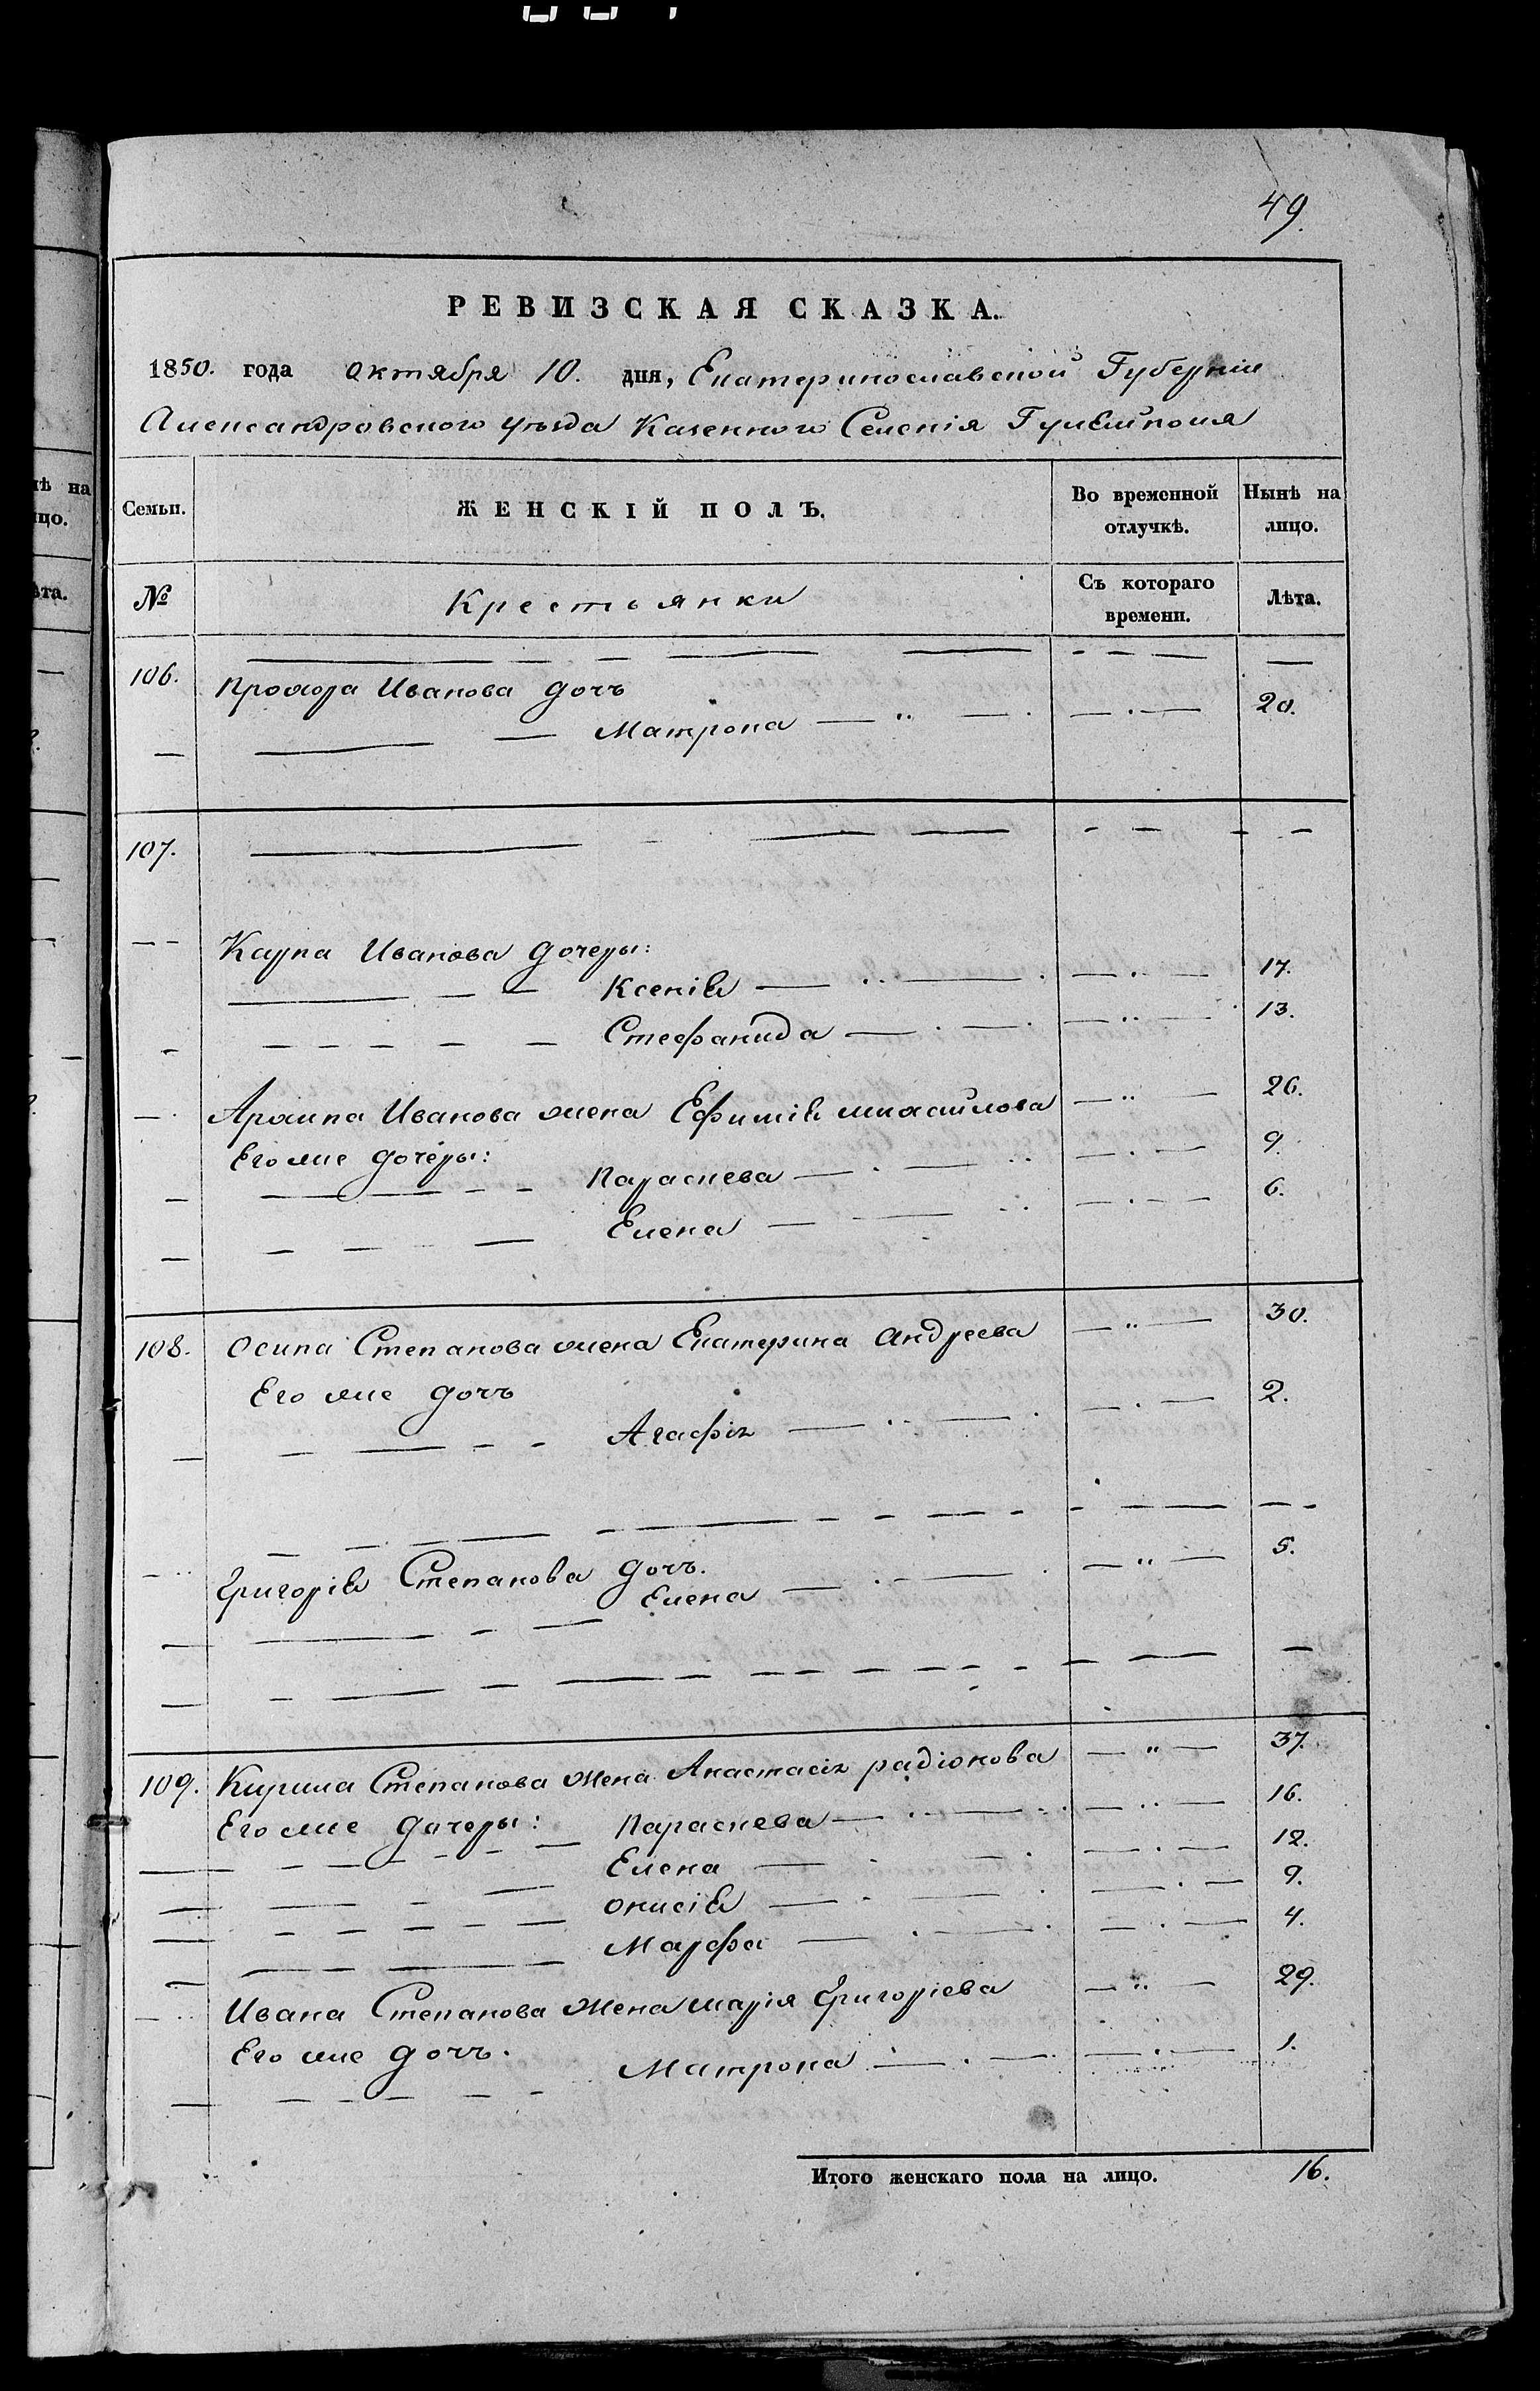 49.
РЕВИЗСКАЯ СКАЗКА.
1850. года октября 10. дня, Екатеринославской Губерніи
Александровского уѣзда Казенного Селенія Гуляйполя
Семьи. ЖЕНСКІЙ ПОЛЪ. Во временной отлучкѣ. Нынѣ на лицо.
№ Крестьянки Съ котораго времени. Лѣта.
106. Прохора Иванова дочь
Матрона 20.
107.
Карпа Иванова дочери:
Ксенія 17.
Стефанида 13.
Архипа Иванова жена Ефимія михайлова 26.
Его же дочери:
Параскева 9.
Елена 6.
108. Осипа Степанова жена Екатерина Андреева 30.
Его же дочь
Агафія 2.
Григорія Степанова дочь.
Елена 5.
109. Кирила Степанова жена Анастасія радіонова 37.
Его же дочери: Параскева 16.
Елена 12.
Онисія 9.
Марфа 4.
Ивана Степанова жена марія Григоріева 29.
Его же дочь.
Матрона 1.
Итого женскаго пола на лицо. 16.